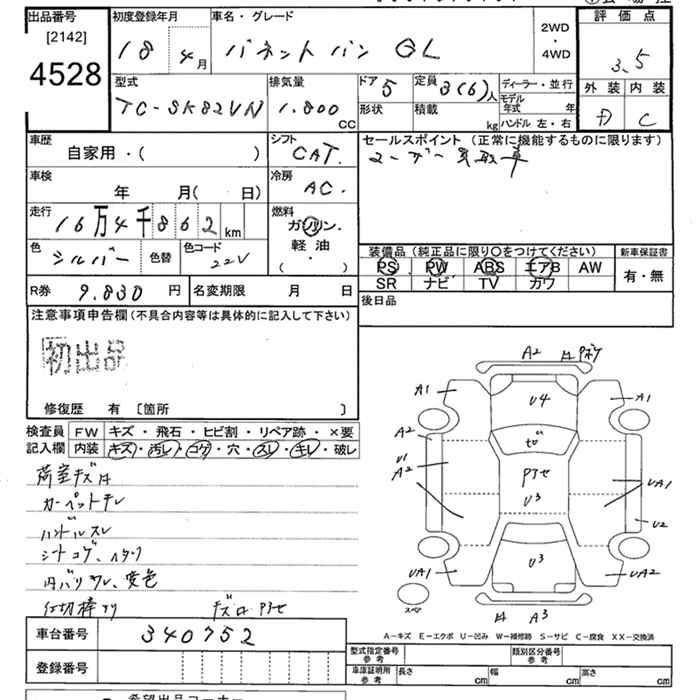 出品番号 初度登録年月 車名・グレード 2WD・4WD 評価点
[2142]
4528
18 4月 バネットバン GL 3.5
型式 排気量 ドア 5 定員 3(6)人 ディーラー・並行 外装 内装
TC-SK82VN 1.800 CC 形状 積載 kg モデル年式 年 C
ハンドル 左・右
車歴 シフト セールスポイント (正常に機能するものに限ります)
自家用・( ) CAT.
車検 冷房
年 月( 日) AC.
走行 16万4千862km 燃料
ガソリン・軽油・( )
色 シルバー 色替 色コード 22V
装備品 (純正品に限り○をつけてください) 新車保証書
PS PW ABS エアB AW 有・無
SR ナビ TV カワ
R券 9.830 円 名変期限 月 日 後日品
注意事項申告欄(不具合内容等は具体的に記入して下さい)
初出品
修復歴 有 〔箇所 〕
検査員記入欄 FW キズ・飛石・ヒビ割・リペア跡・×要
内装 キズ・汚レ・コゲ・穴・スレ・キレ・破レ
荷室キズ
カーペットキレ
ハンドルスレ
シートコゲ、
内バリ ワレ、変色
仕切棒
A2
A1 U4 A1
A2
U1
A2 U3 UA1
U2
UA1 U3 UA2
スペア A3
A-キズ E-エクボ U-凹み W-補修跡 S-サビ C-腐食 XX-交換済
車台番号 340752
型式指定番号 参考 類別区分番号 参考
登録番号 車庫証明用 参考 長さ cm 幅 cm 高さ cm
希望出品コーナー